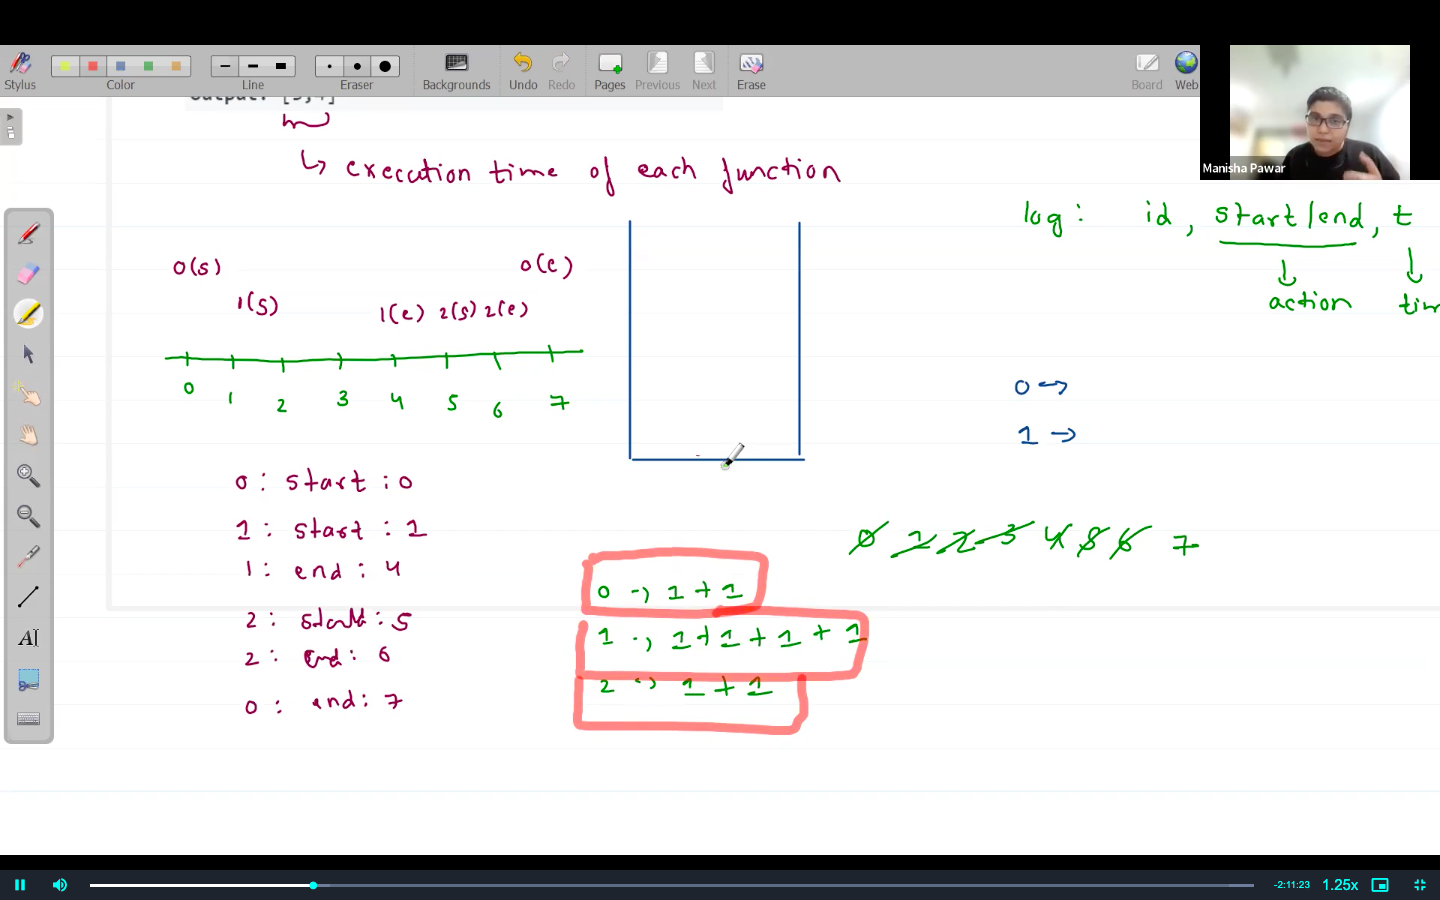 Stylus
Color
Line
Eraser
Backgrounds
Undo
Redo
Pages
Previous
Next
Erase
Board
Web
Manisha Pawar
↳ execution time of each function
log : id , start/end , t
↓ ↓
action tim
0(s) 0(e)
1(s) 1(e) 2(s) 2(e)
0 1 2 3 4 5 6 7
0 →
1 →
0 : start : 0
1 : start : 1
1 : end : 4
2 : start : 5
2 : end : 6
0 : end : 7
0 1 2 3 4 5 6 7
0 → 1 + 1
1 → 1 + 1 + 1 + 1
2 → 1 + 1
AI
-2:11:23
1.25x